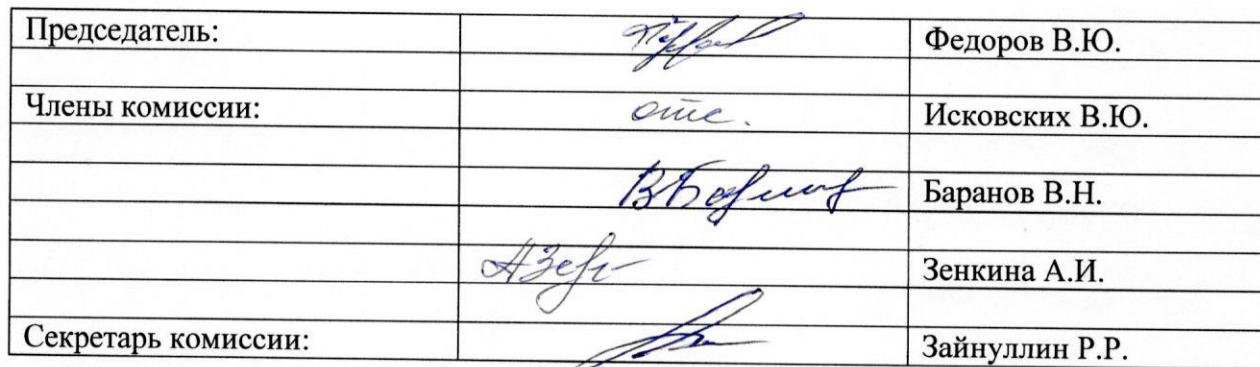 Председатель: Федоров В.Ю.
Члены комиссии: отс. Исковских В.Ю.
Баранов В.Н.
Зенкина А.И.
Секретарь комиссии: Зайнуллин Р.Р.